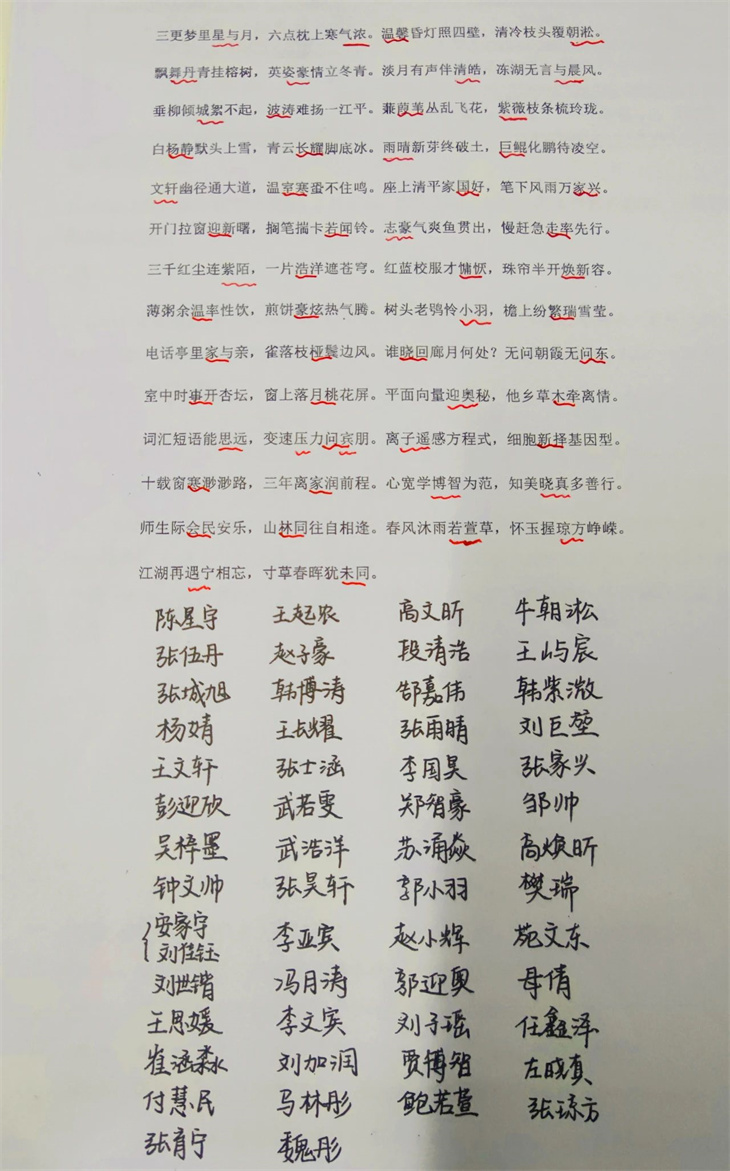 三更梦里星与月，六点枕上寒气浓。温馨昏灯照四壁，清冷枝头覆朝淞。
飘舞丹青挂榕树，英姿豪情立冬青。淡月有声伴清皓，冻湖无言与晨风。
垂柳倾城絮不起，波涛难扬一江平。蒹葭苇丛乱飞花，紫薇枝条梳玲珑。
白杨静默头上雪，青云长耀脚底冰。雨晴新芽终破土，巨鲲化鹏待凌空。
文轩幽径通大道，温室寒蛩不住鸣。座上清平家国好，笔下风雨万家兴。
开门拉窗迎新曙，搁笔揣卡若闻铃。志豪气爽鱼贯出，慢赶急走率先行。
三千红尘连紫陌，一片浩洋遮苍穹。红蓝校服才慵恹，珠帘半开焕新容。
薄粥余温率性饮，煎饼豪炫热气腾。树头老鸮怜小羽，檐上纷繁瑞雪莹。
电话亭里家与亲，雀落枝桠鬓边风。谁晓回廊月何处？无问朝霞无问东。
室中时事开杏坛，窗上落月桃花屏。平面向量迎奥秘，他乡草木牵离情。
词汇短语能思远，变速压力问宾朋。离子遥感方程式，细胞新择基因型。
十载窗寒渺渺路，三年离家润前程。心宽学博智为范，知美晓真多善行。
师生际会民安乐，山林同往自相逢。春风沐雨若萱草，怀玉握琼方峥嵘。
江湖再遇宁相忘，寸草春晖犹未同。
陈星宇 王起浓 高文昕 牛朝淞
张伍丹 赵子豪 段清浩 王屿宸
张城旭 韩博涛 郜嘉伟 韩紫溦
杨婧 王长耀 张雨晴 刘巨堃
王文轩 张士涵 李国昊 张家兴
彭迎欣 武若雯 郑智豪 邹帅
吴梓墨 武浩洋 苏涌焱 高焕昕
钟文帅 张昊轩 郭小羽 樊瑞
安家宁 李亚宾 赵小辉 苑文东
刘佳钰
刘世锴 冯月涛 郭迎奥 母倩
王思媛 李文宾 刘子瑶 任鑫泽
崔涵淼 刘加润 贾博智 左晓真
付慧民 马林彤 鲍若萱 张琼方
张育宁 魏彤